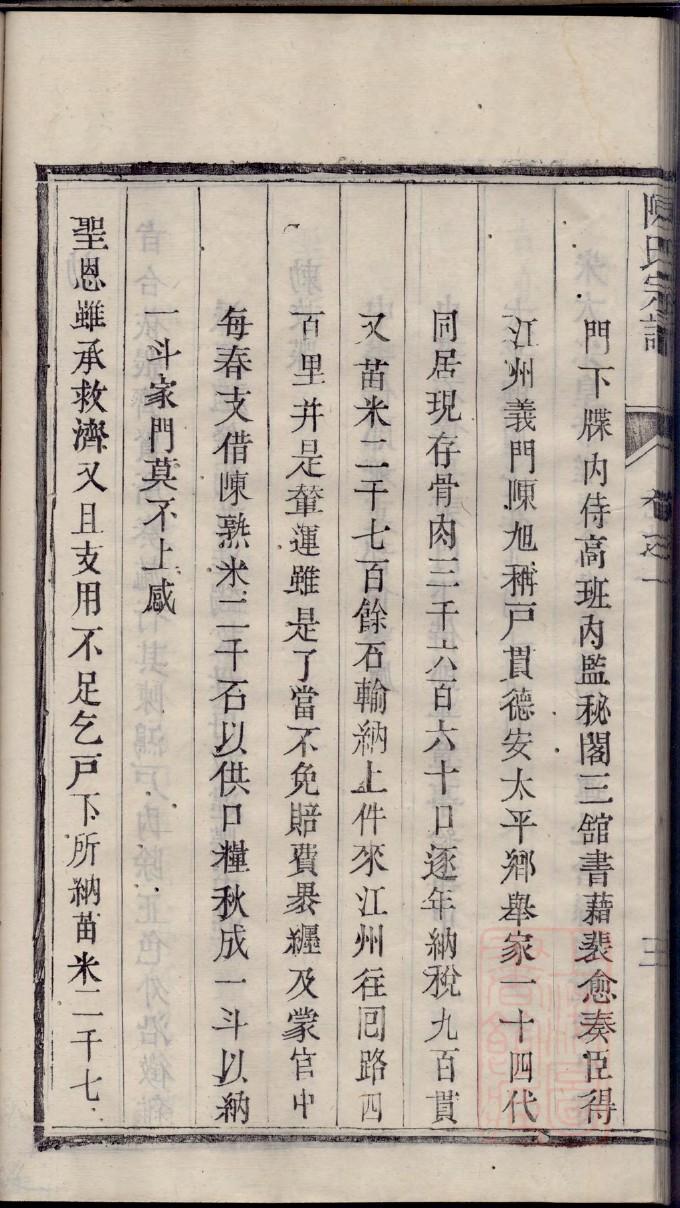 陳氏宗譜
卷之一
三
門下牒內侍高班內監秘閣三舘書藉裴愈奏臣得
江州義門陳旭稱戸貫德安太平鄉舉家一十四代
同居現存骨肉三千六百六十口逐年納稅九百貫
又苗米二千七百餘石輸納上件來江州往囘路四
百里并是輦運雖是了當不免賠費暴纒及蒙官中
每春支借陳熟米二千石以供口糧秋成一斗以納
一斗家門莫不上感
聖恩雖承救濟又且支用不足乞戸下所納苗米二千七